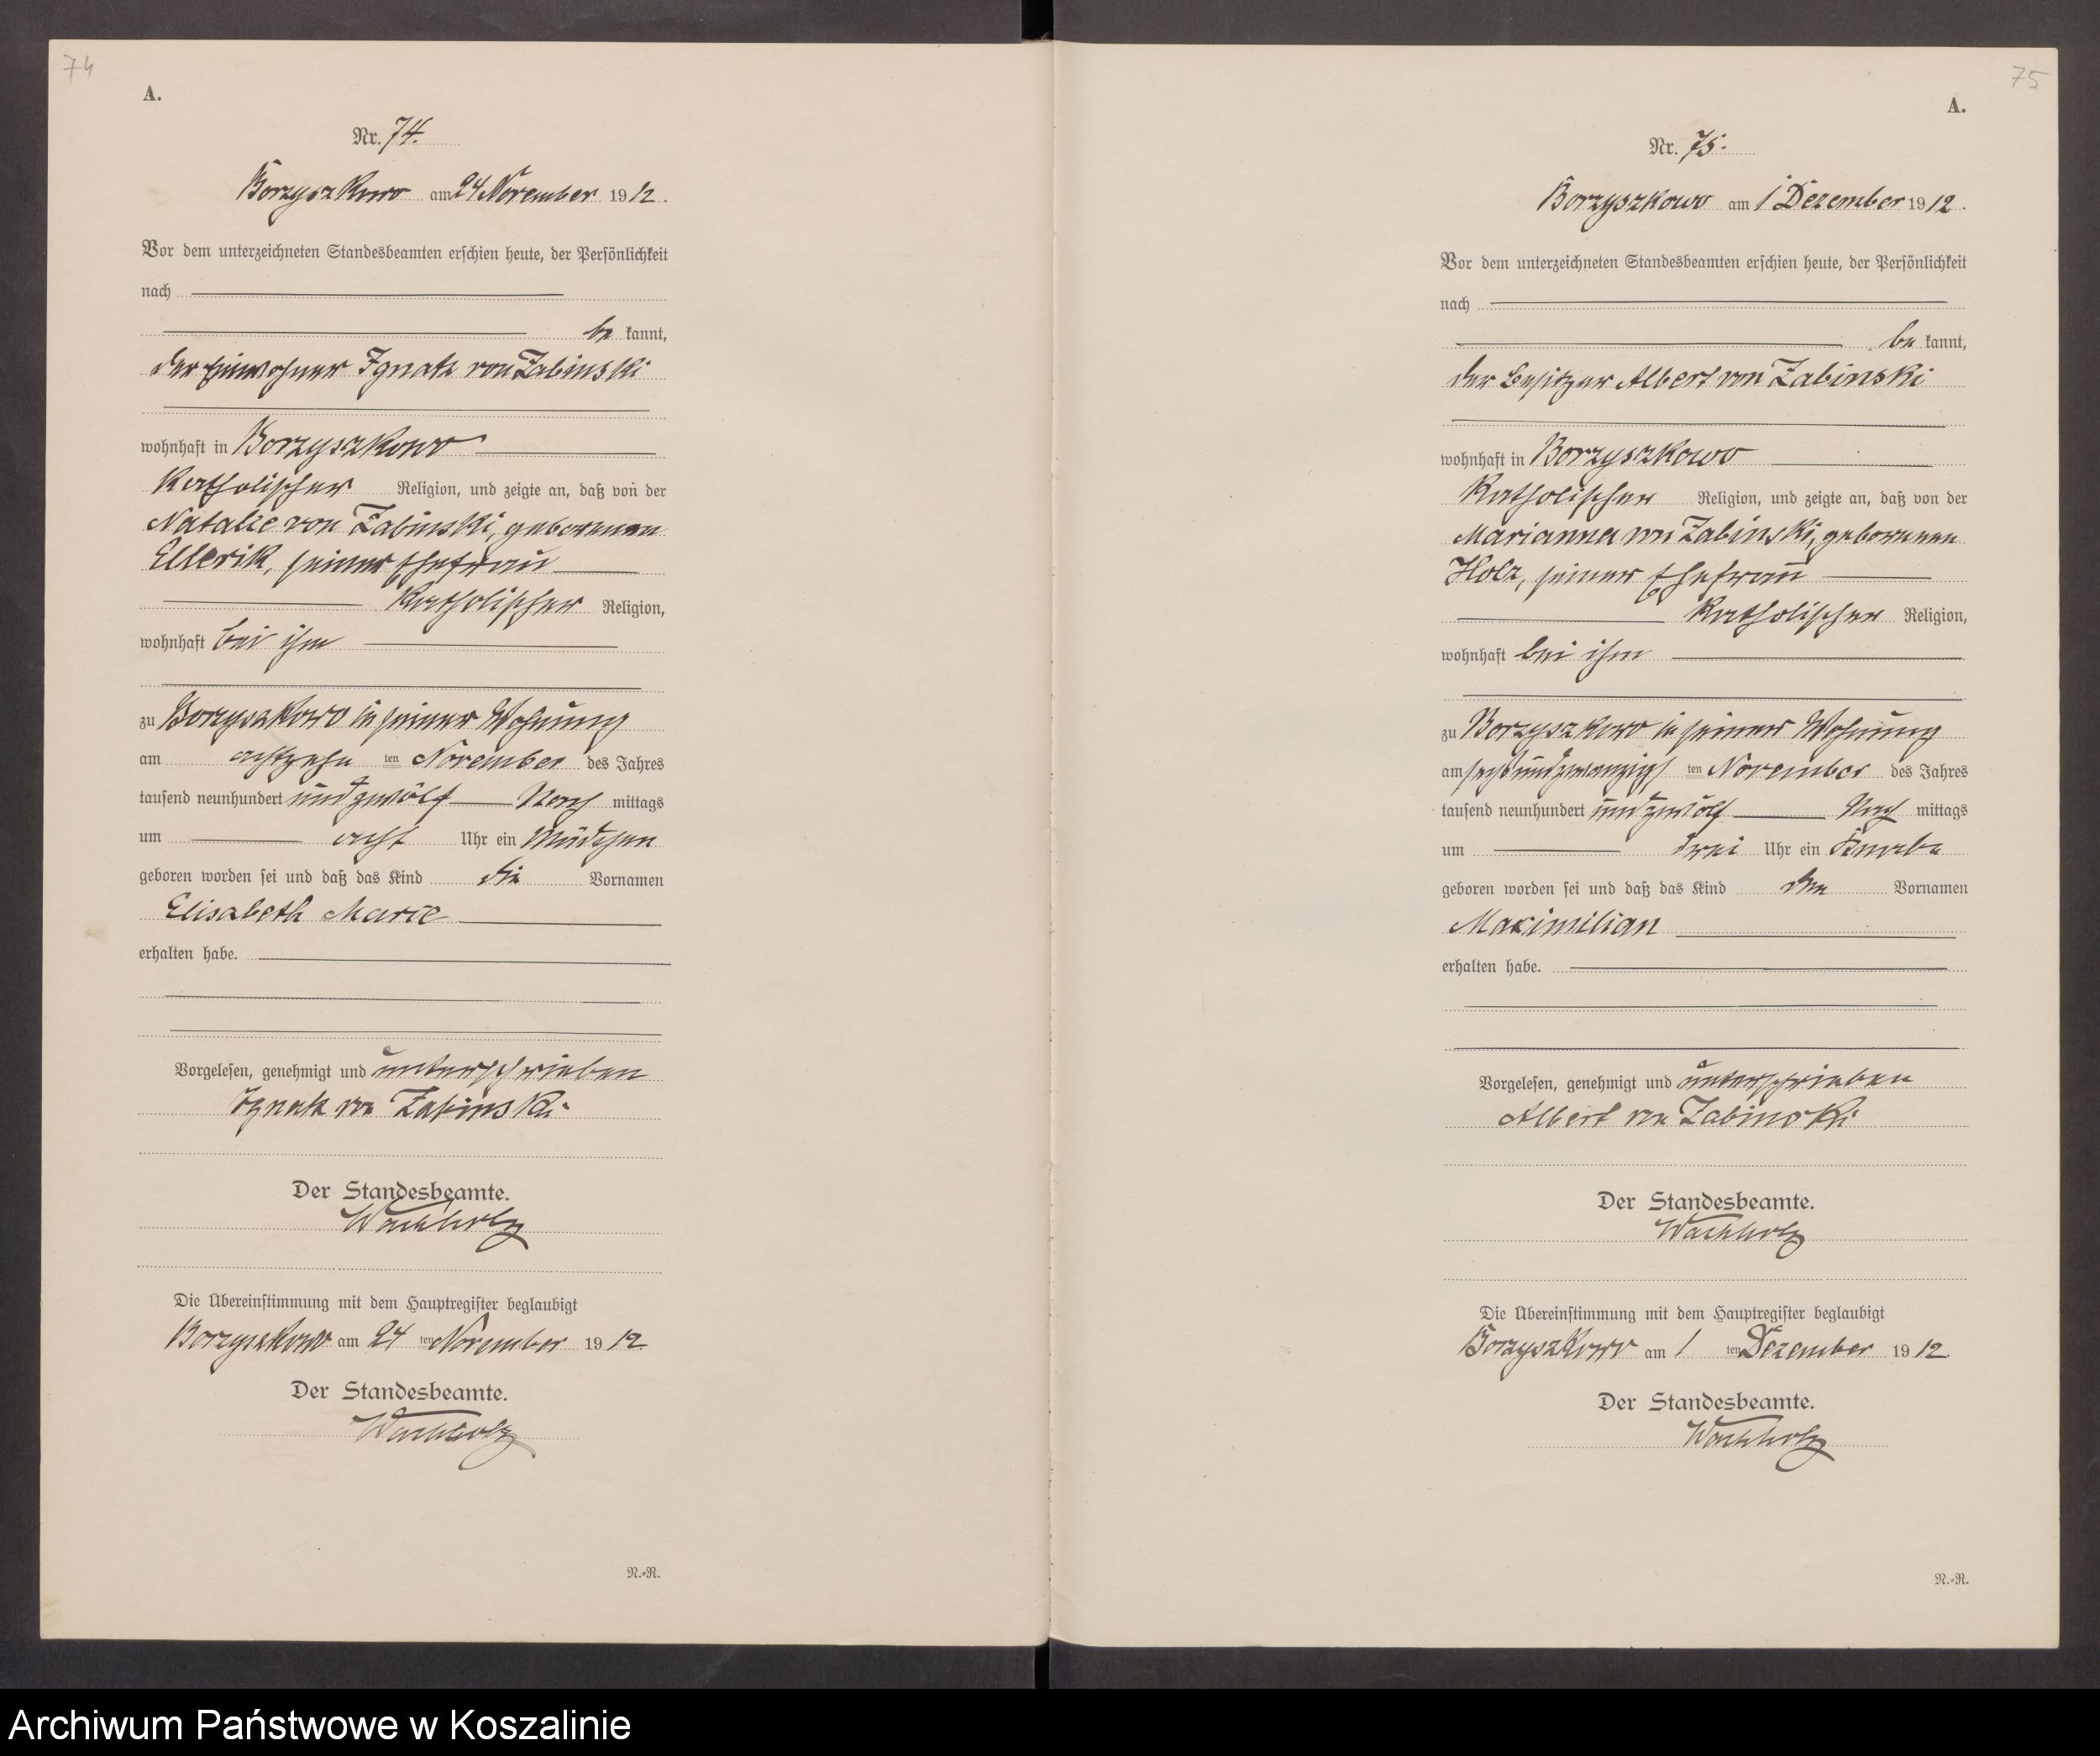 74
A.
Nr. 74.
Borzyszkowo am 24 November 1912.
Vor dem unterzeichneten Standesbeamten erschien heute, der Persönlichkeit
nach
be kannt,
der Einwohner Ignatz von Zabinski
wohnhaft in Borzyszkowo
katholischer Religion, und zeigte an, daß von der
Natalie von Zabinski, geborenen
Ellerik, seiner Ehefrau
katholischer Religion,
wohnhaft bei ihm
zu Borzyszkowo in seiner Wohnung
am achtzehn ten November des Jahres
tausend neunhundert und zwölf Nach mittags
um acht Uhr ein Mädchen
geboren worden sei und daß das Kind die Vornamen
Elisabeth Marie
erhalten habe.
Vorgelesen, genehmigt und unterschrieben
Ignatz von Zabinski
Der Standesbeamte.
Wachholz
Die Übereinstimmung mit dem Hauptregister beglaubigt
Borzyszkowo am 24 ten November 1912
Der Standesbeamte.
Wachholz
N.-R.
75
A.
Nr. 75.
Borzyszkowo am 1 Dezember 1912.
Vor dem unterzeichneten Standesbeamten erschien heute, der Persönlichkeit
nach
be kannt,
der Besitzer Albert von Zabinski
wohnhaft in Borzyszkowo
katholischer Religion, und zeigte an, daß von der
Marianna von Zabinski, geborenen
Holz, seiner Ehefrau
katholischer Religion,
wohnhaft bei ihm
zu Borzyszkowo in seiner Wohnung
am sechsundzwanzigs ten November des Jahres
tausend neunhundert und zwölf Nach mittags
um drei Uhr ein Knabe
geboren worden sei und daß das Kind den Vornamen
Maximilian
erhalten habe.
Vorgelesen, genehmigt und unterschrieben
Albert von Zabinski
Der Standesbeamte.
Wachholz
Die Übereinstimmung mit dem Hauptregister beglaubigt
Borzyszkowo am 1 ten Dezember 1912
Der Standesbeamte.
Wachholz
N.-R.
Archiwum Państwowe w Koszalinie